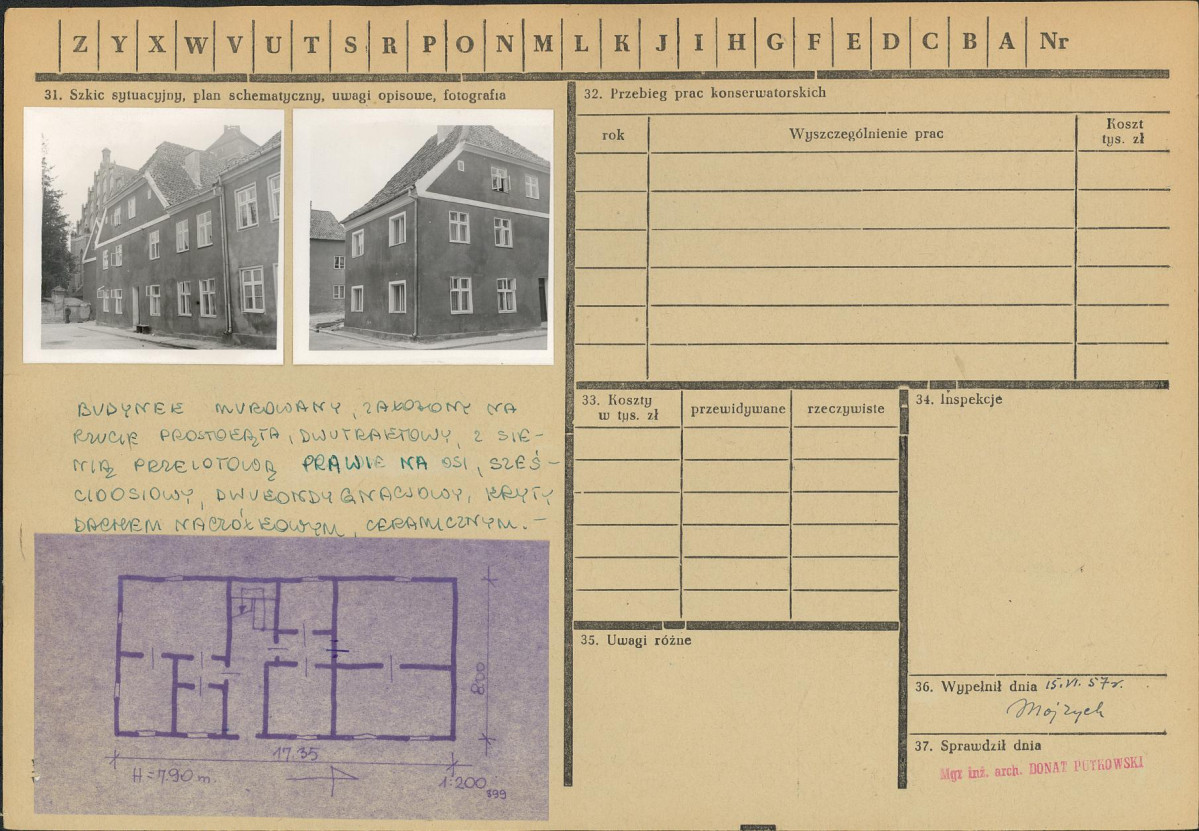 Z Y X W V U T S R P O N M L K J I H G F E D C B A Nr
31. Szkic sytuacyjny, plan schematyczny, uwagi opisowe, fotografia
BUDYNEK MUROWANY, ZAŁOŻONY NA
RZUCIE PROSTOKĄTA, DWUTRAKTOWY, Z SIE-
NIĄ PRZELOTOWĄ PRAWIE NA OSI, SZEŚ-
CIOOSIOWY, DWUKONDYGNACJOWY, KRYTY
DACHEM NACZÓŁKOWYM, CERAMICZNYM.-
8.00
17.35
H=7.90 m.
1:200
899
32. Przebieg prac konserwatorskich
rok
Wyszczególnienie prac
Koszt
tys. zł
33. Koszty
w tys. zł
przewidywane
rzeczywiste
34. Inspekcje
35. Uwagi różne
36. Wypełnił dnia 15.VI.57r.
Mojzych
37. Sprawdził dnia
Mgr inż. arch. DONAT PUTKOWSKI